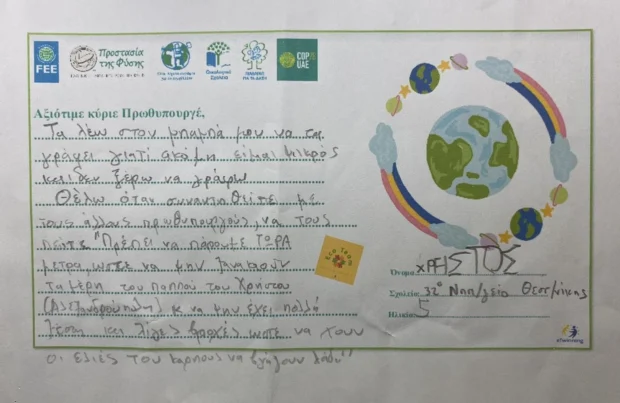 FEE
Προστασία
της Φύσης
Οικολογικά
Σχολεία
COP
UAE
Αξιότιμε κύριε Πρωθυπουργέ,
Τα λέω στον μπαμπά μου να τα
γράψει γιατί ακόμη είμαι μικρός
και δεν ξέρω να γράφω
Θέλω όταν συναντηθείτε με
τους άλλους πρωθυπουργούς, να τους
πείτε "Πρέπει να πάρουμε ΤΩΡΑ
μέτρα ώστε να μην
τα μέρη του παππού του Χρήστου
(Αλεξανδρούπολη) κ να μην έχει πολλή
ζέστη και λίγες βροχές ώστε να χουν
οι ελιές του καρπούς να βγάζουν λάδι"
Eco Team
Όνομα ΧΡΗΣΤΟΣ
Σχολείο 32ο Νηπ/γείο Θεσ/νίκης
Ηλικία 5
eTwinning